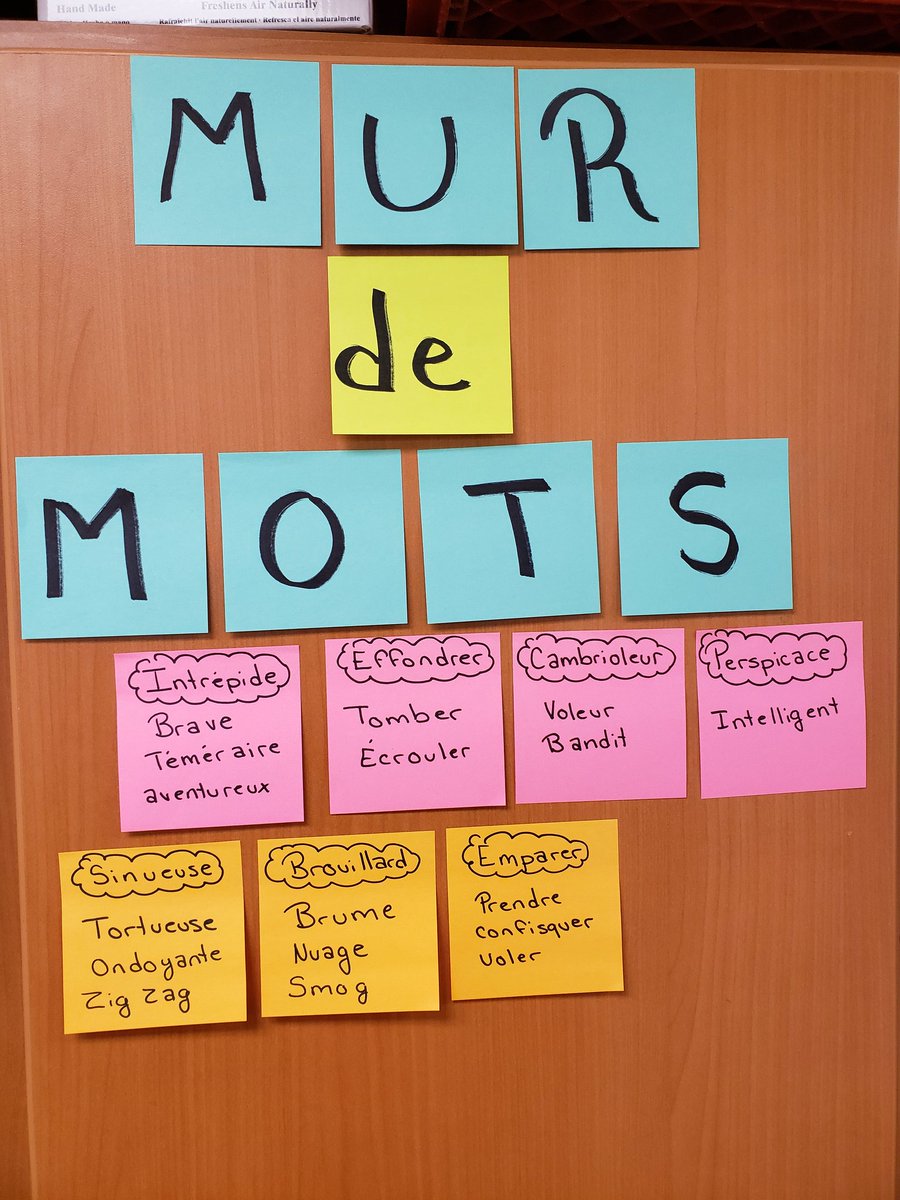 Hand Made Freshens Air Naturally
Rafraîchit l'air naturellement · Refresca el aire naturalmente
MUR
de
MOTS
Intrépide
Brave
Téméraire
aventureux
Effondrer
Tomber
Écrouler
Cambrioleur
Voleur
Bandit
Perspicace
Intelligent
Sinueuse
Tortueuse
Ondoyante
Zig Zag
Brouillard
Brume
Nuage
Smog
Emparer
Prendre
confisquer
voler